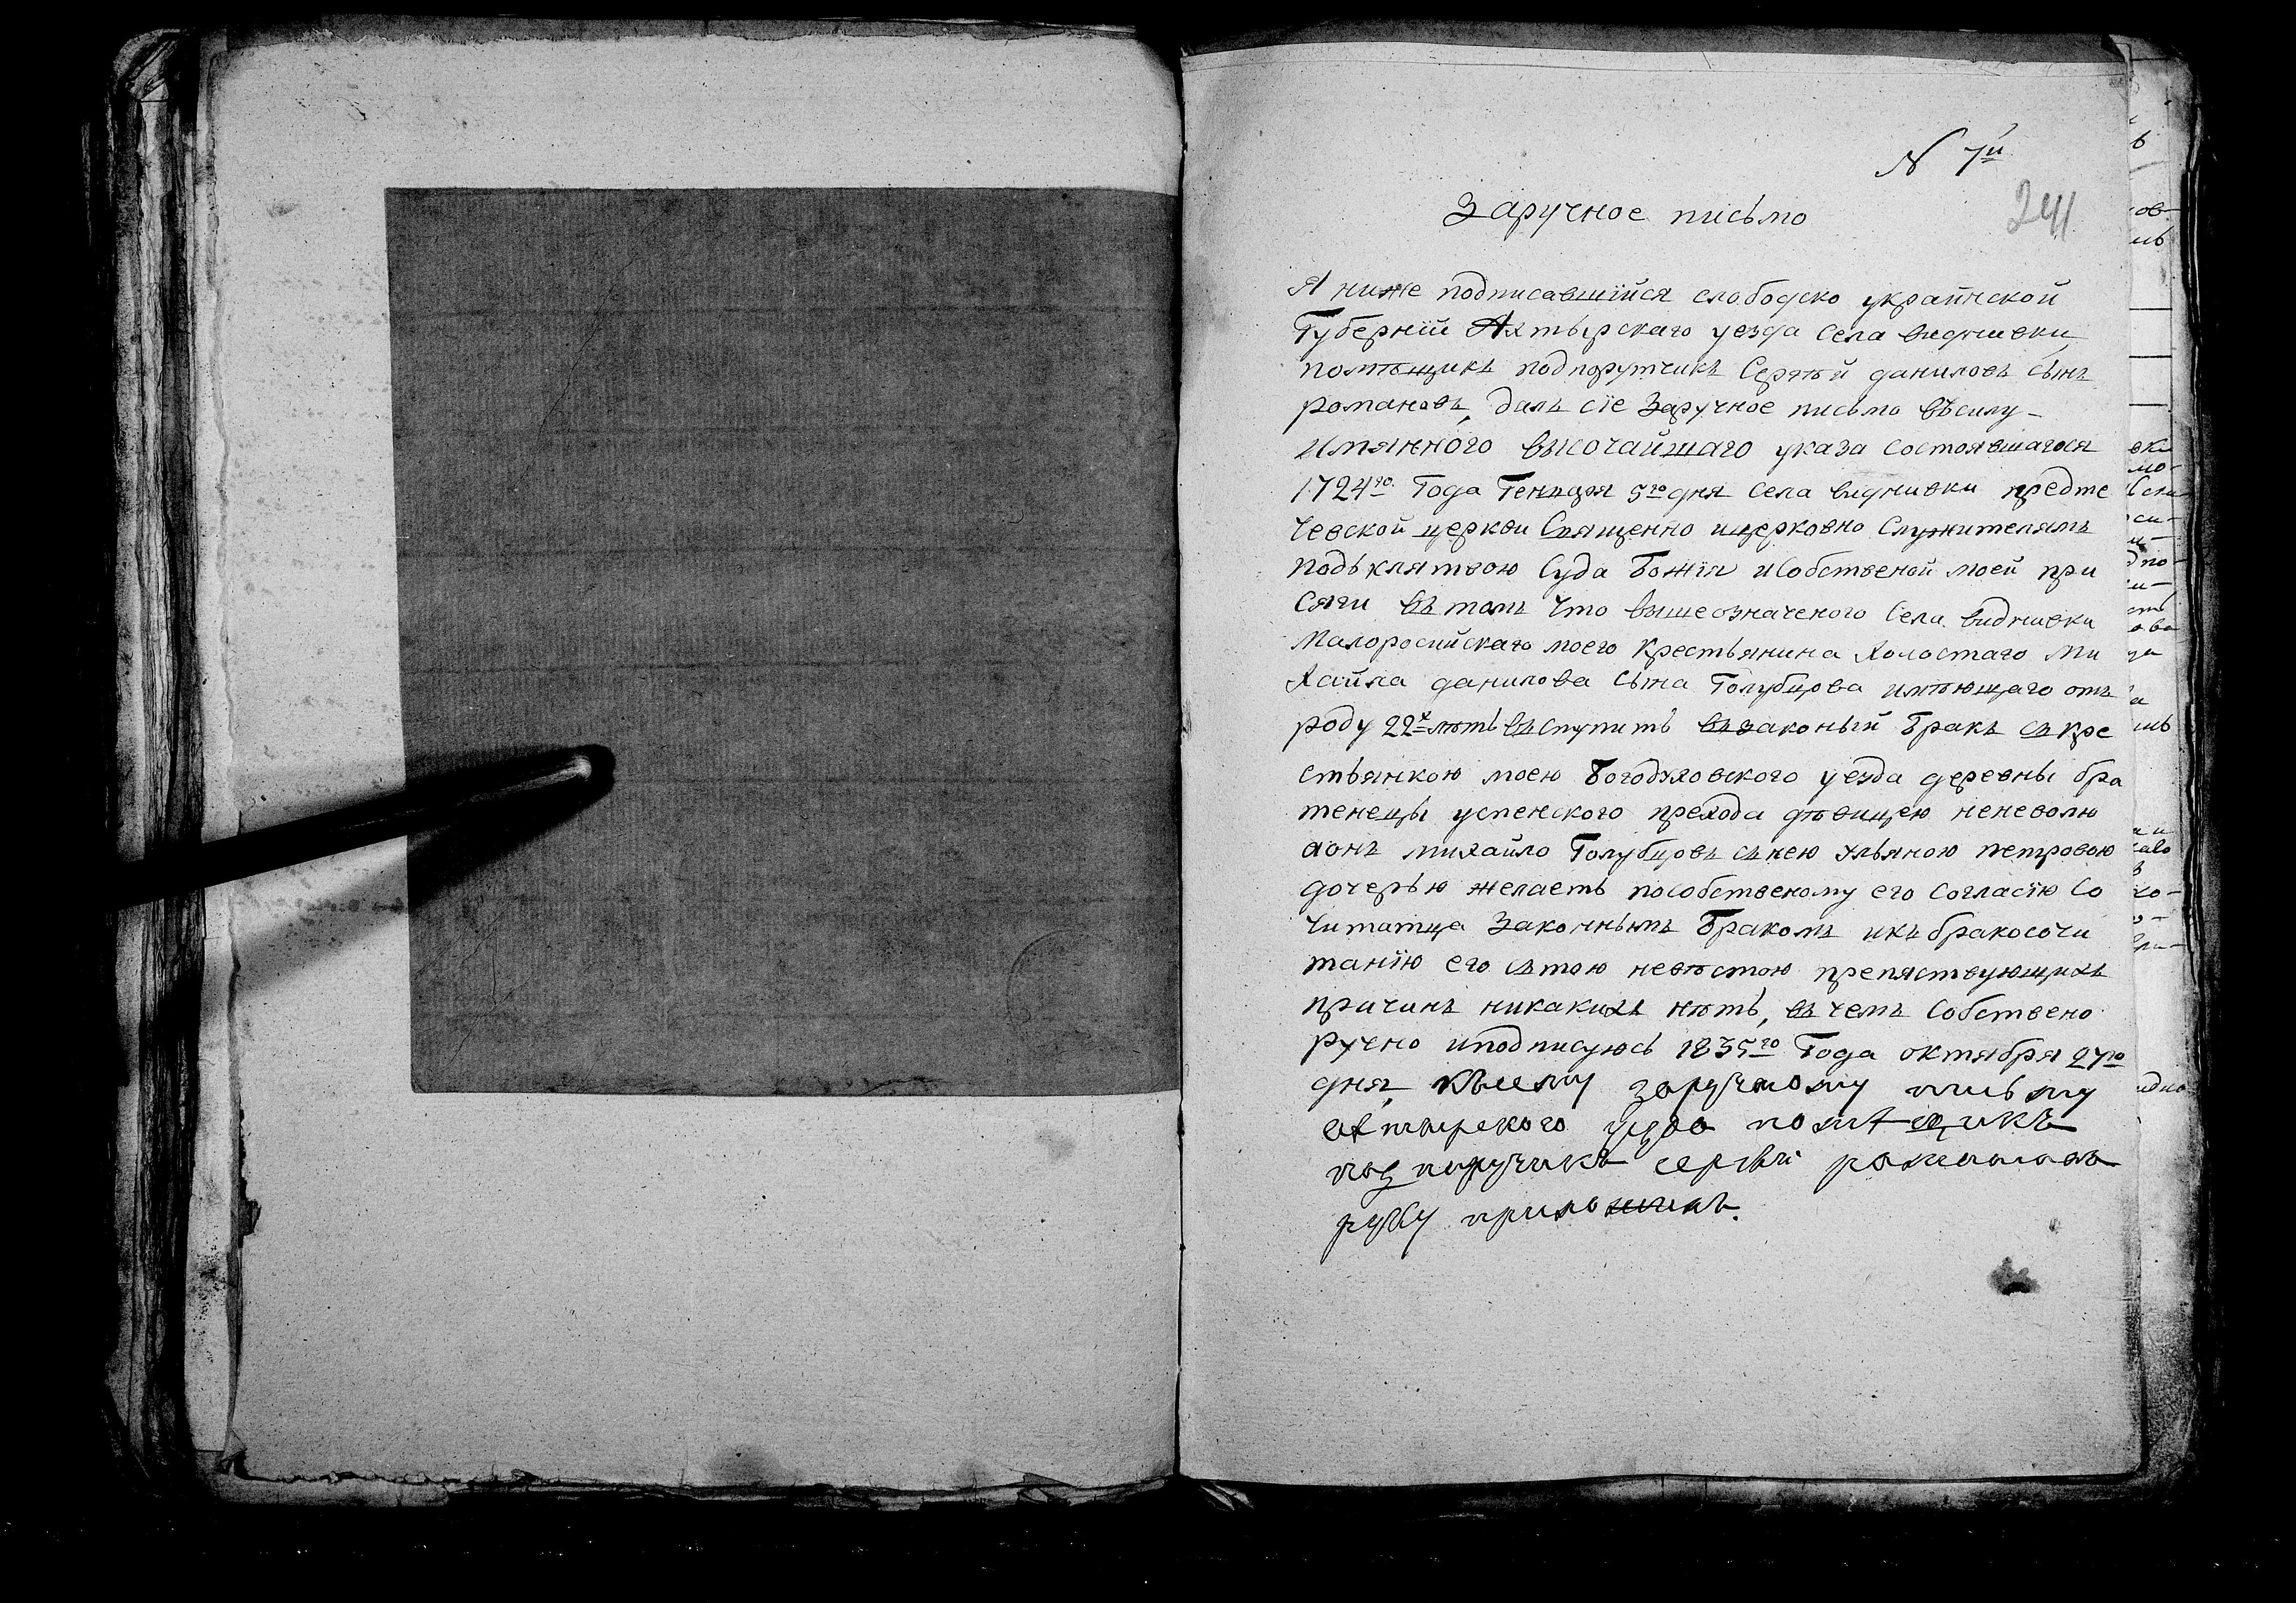 N 7й
241
Заручное письмо
Я ниже подписавшійся слободско украинской
Губерніи Ахтырскаго уезда Села видннвки
помѣщикъ подпорутчикъ Сергѣй даниловъ сынъ
романовъ, далъ сіе Заручное письмо въсилу
имянного высочайшаго указа состоявшагося
1724го Года Генваря 5го дня Села виднивки предте
чевской церкви Священно ицерковно Служителямъ
подъклятвою Суда Божія иСобственой моей при
сяги въ томъ что вышеозначеного Села виднивки
Малоросийскаго моего крестьянина Холостаго Ми
хайла данилова сына Голубцова имѣющаго отъ
роду 22х лѣтъ въступить въ законый бракъ съ кре
стьянкою моею Богодуховского уезда деревны бра
тенецы успенского прехода дѣвицею неневолю
аонъ михайло Голубцовъ съ нею ульяною петровою
дочерью желаетъ пособственому его согласію Со
читатца Законнымъ Бракомъ икъ бракосочи
танію его съ тою невѣстою препяствующихъ
причинъ никакихъ нѣтъ, въ чемъ Собствено
ручно иподписуюсь 1835го Года октября 27го
дня, Къ сему заручному письму
ахтырского уезда помѣщикъ
подпоручикъ сергѣй романовъ
руку приложилъ.